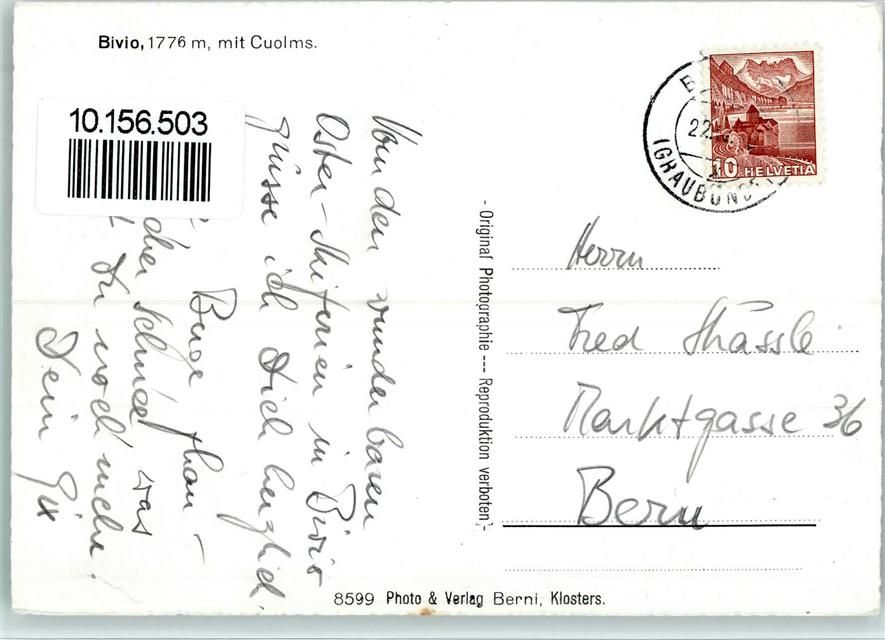 Bivio, 1776 m, mit Cuolms.
10.156.503
Von den wunderbaren
Oster-Skiferien in Bivio
grüsse ich Dich herzlich.
Berge
der Schnee was
Du noch mehr!
Dein
- Original Photographie --- Reproduktion verboten! -
10 HELVETIA
22.
(GRAUBÜND
Herrn
Fred Strässle
Marktgasse 36
Bern
8599 Photo & Verlag Berni, Klosters.